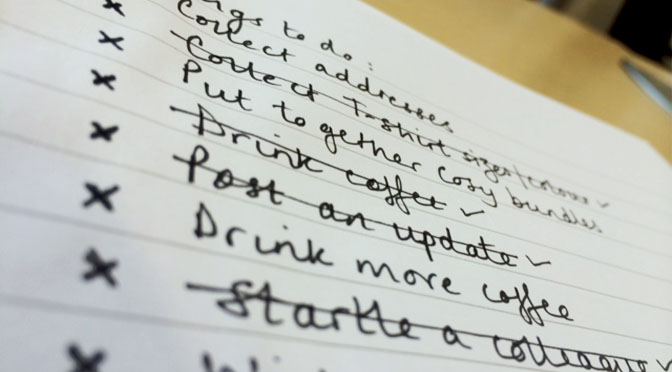 Things to do:
× Collect addresses
× Collect T-shirt sizes/colours ✓
× Put together cosy bundles
× Drink coffee ✓
× Post an update ✓
× Drink more coffee
× Startle a colleague ✓
×